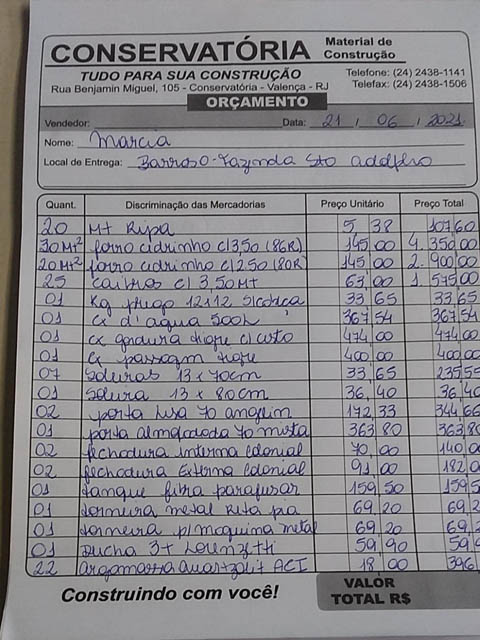 CONSERVATÓRIA Material de Construção
TUDO PARA SUA CONSTRUÇÃO Telefone: (24) 2438-1141
Rua Benjamin Miguel, 105 - Conservatória - Valença - RJ Telefax: (24) 2438-1506
ORÇAMENTO
Vendedor: Data: 21 / 06 / 2021
Nome: Marcia
Local de Entrega: Barroso-Fazenda Sto Adolfho
Quant. Discriminação das Mercadorias Preço Unitário Preço Total
20 Mt Ripa 5,38 107,60
30 Mt² forro cidrinho c/3,50 (86R) 145,00 4.350,00
20 Mt² forro cidrinho c/2,50 (80R) 145,00 2.900,00
25 caibros c/ 3,50 Mt 63,00 1.575,00
01 Kg prego 12x12 33,65 33,65
01 cx d'agua 500L 367,54 367,54
01 cx gordura tigre c/ cesto 474,00 474,00
01 cx passagem tigre 400,00 400,00
07 Soleiras 13 x 70cm 33,65 235,55
01 Soleira 13 x 80cm 36,40 36,40
02 porta lisa 70 angelim 172,33 344,66
01 porta almofadada 70 mista 363,80 363,80
02 fechadura interna colonial 70,00 140,0
02 fechadura Externa colonial 91,00 182,0
01 tanque fibra parafusar 159,50 159,5
01 torneira metal Rita pia 69,20 69,2
01 torneira p/ maquina metal 69,20 69,2
01 Ducha 3t Lorenzetti 59,90 59,9
22 argamassa quartzolit ACI 18,00 396
Construindo com você! VALOR TOTAL R$